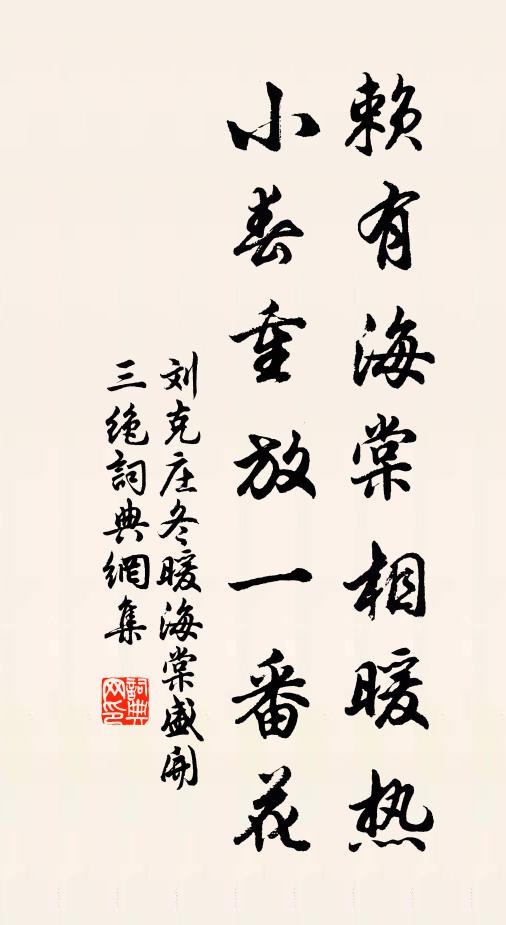 赖有海棠相暖热
小春重放一番花
刘克庄冬暖海棠盛開
三绝詞典網集
詞典网印